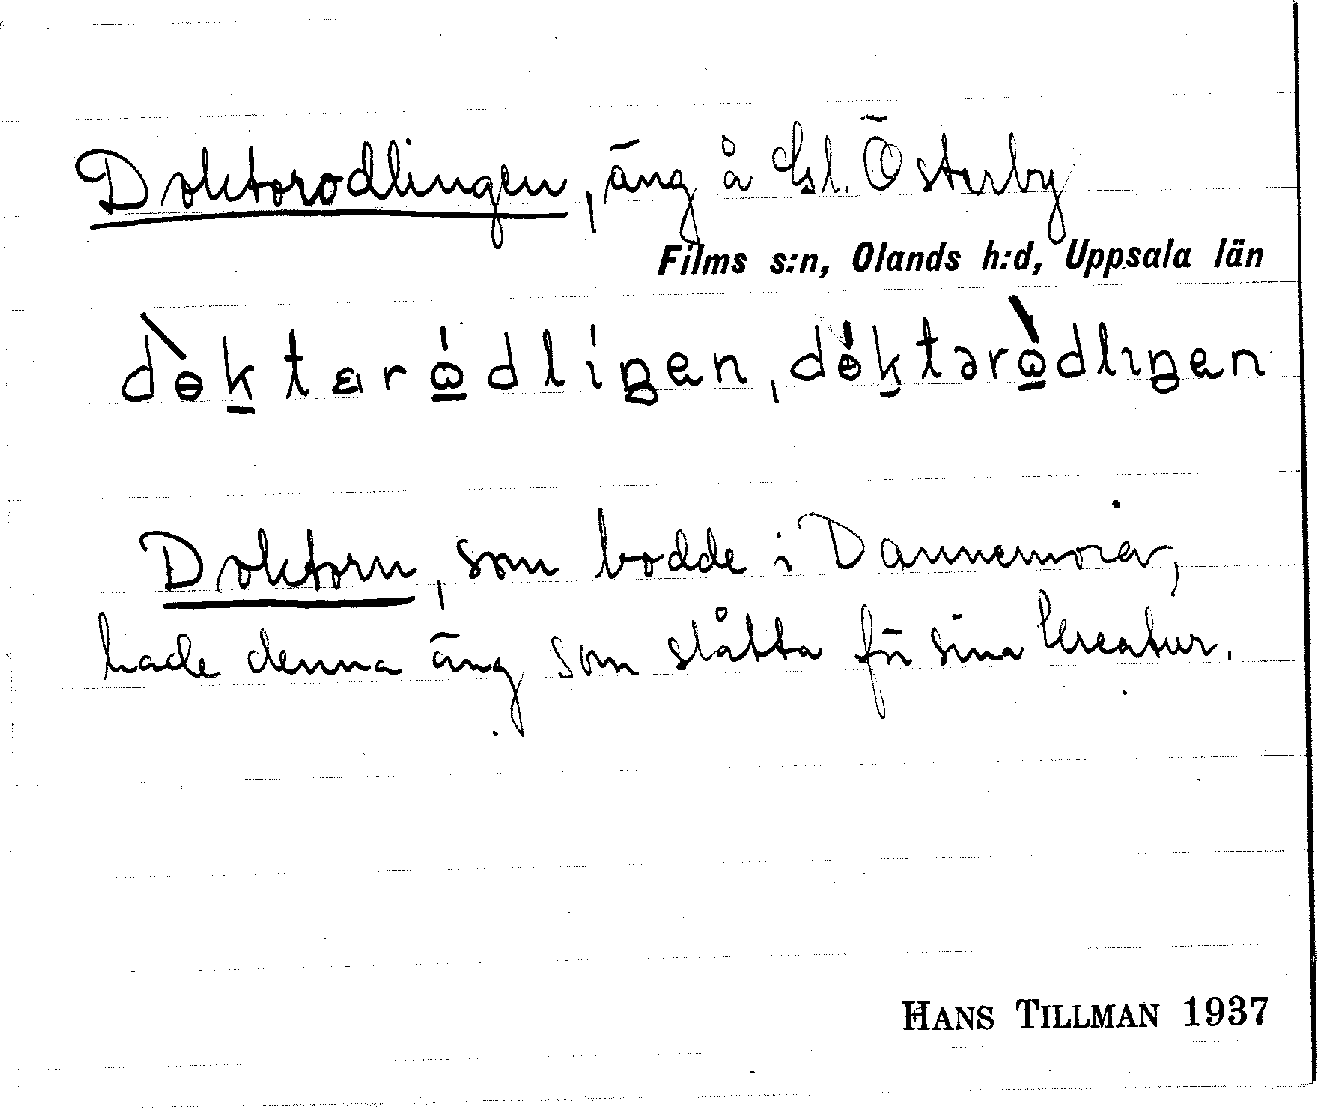 Doktorodlingen, äng å Gl. Österby
Films s:n, Olands h:d, Uppsala län
dɵ̀ktɛrὼdlíŋen, dɵ́ktərὼdlıŋen
Doktorn, som bodde i Dannemora,
hade denna äng som slåtta för sina kreatur.
HANS TILLMAN 1937